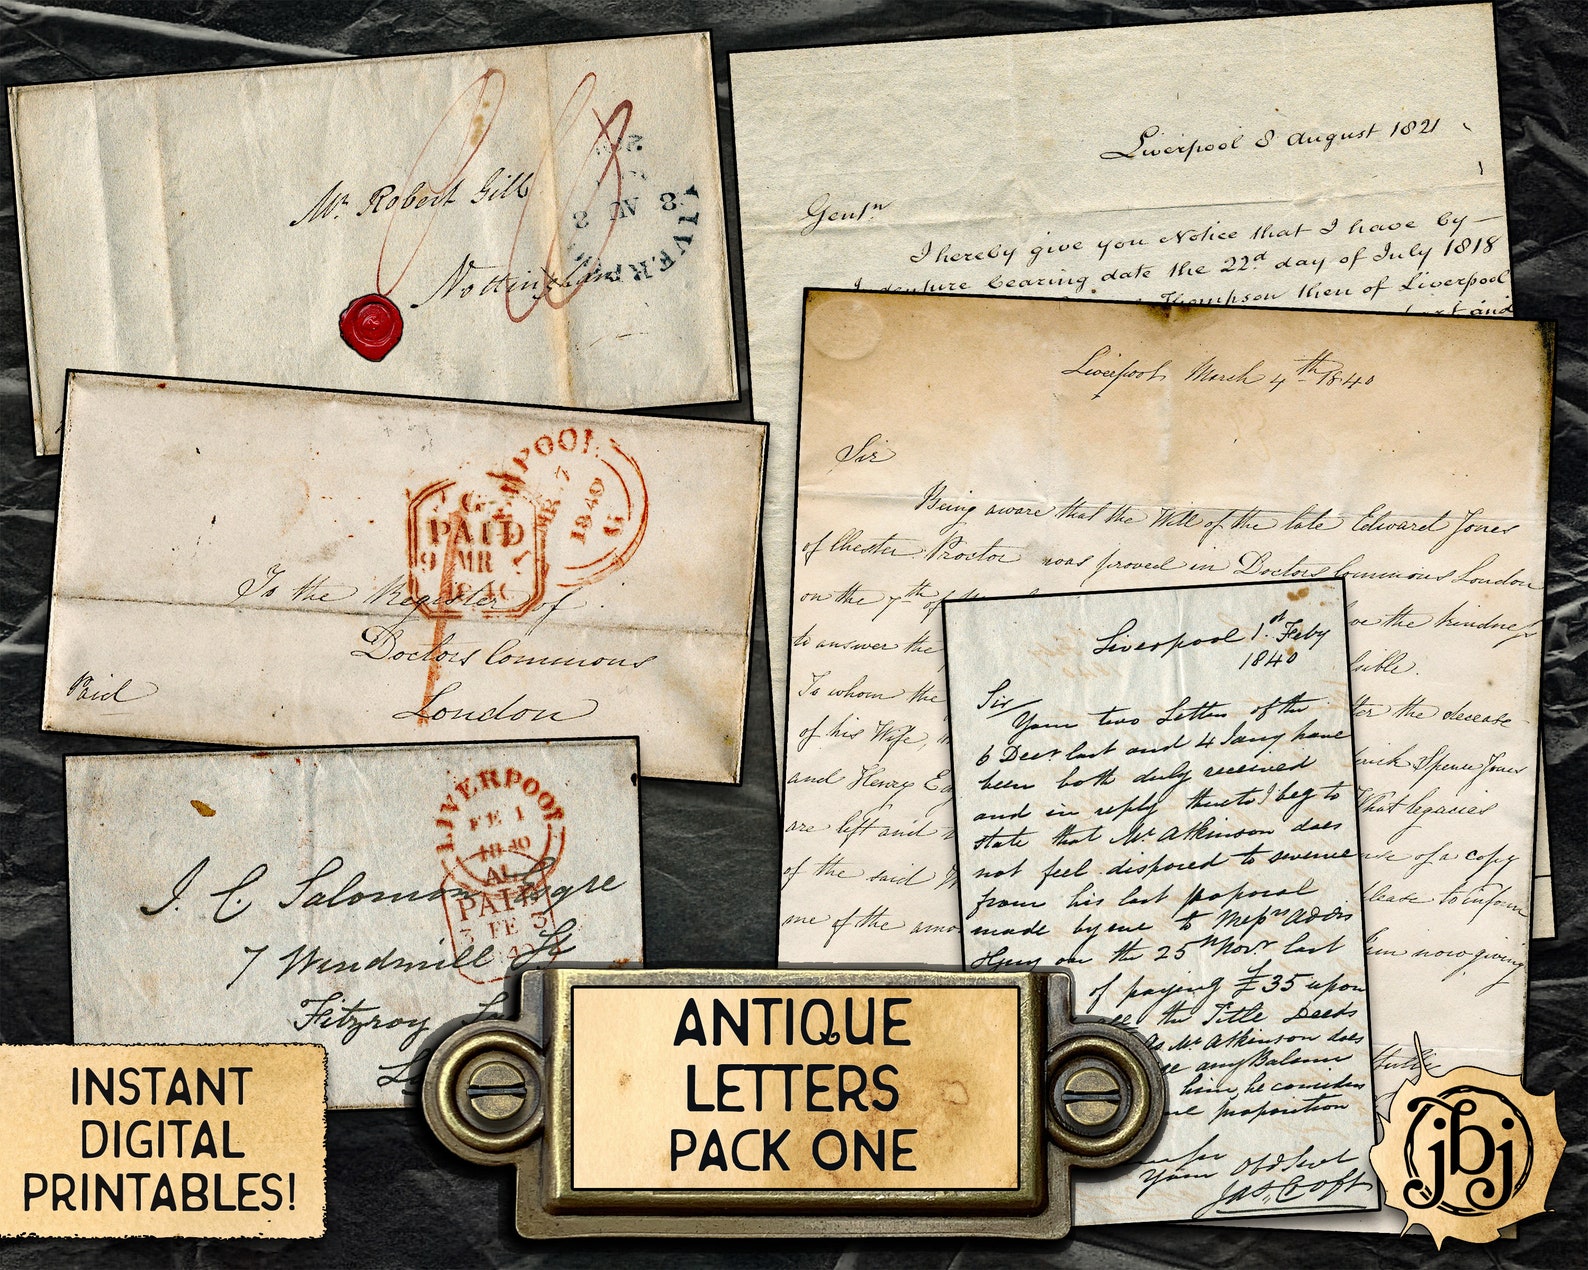 Mr. Robert Gill
Nottingham
LIVERPOOL
8 AU 8
Liverpool 8 August 1821
Gentn
I hereby give you Notice that I have by
Indenture bearing date the 22d day of July 1818
Thompson then of Liverpool
and
LIVERPOOL
MR 7
1840
G
PAID
9 MR
1840
1
To the Register of
Doctors Commons
London
Paid
Liverpool March 4th 1840
Sir
Being aware that the Will of the late Edward Jones
of Chester Proctor was proved in Doctors Commons London
on the 7th of
the kindness
to answer the
To whom the
the decease
of his Wife,
Spence Jones
and Henry
What legacies
are left and
of a copy
of the said
please to inform
me of the
now giving
LIVERPOOL
FE 1
1840
PAID
3 FE 3
J. C. Salomon Esqre
7 Windmill St
Fitzroy
Liverpool 1st Feby
1840
Sir
Your two Letters of the
6 Decr last and 4 Jany have
been both duly received
and in reply thereto I beg to
state that Mr Atkinson does
not feel disposed to
from his last proposal
made by me to Messrs Addis
Guy on the 25th Novr last
of paying £35 upon
the Title Deeds
As Mr Atkinson does
any Balance
him, he considers
proposition
Your Obdt Servt
Jas. Croft
ANTIQUE
LETTERS
PACK ONE
INSTANT
DIGITAL
PRINTABLES!
jbj